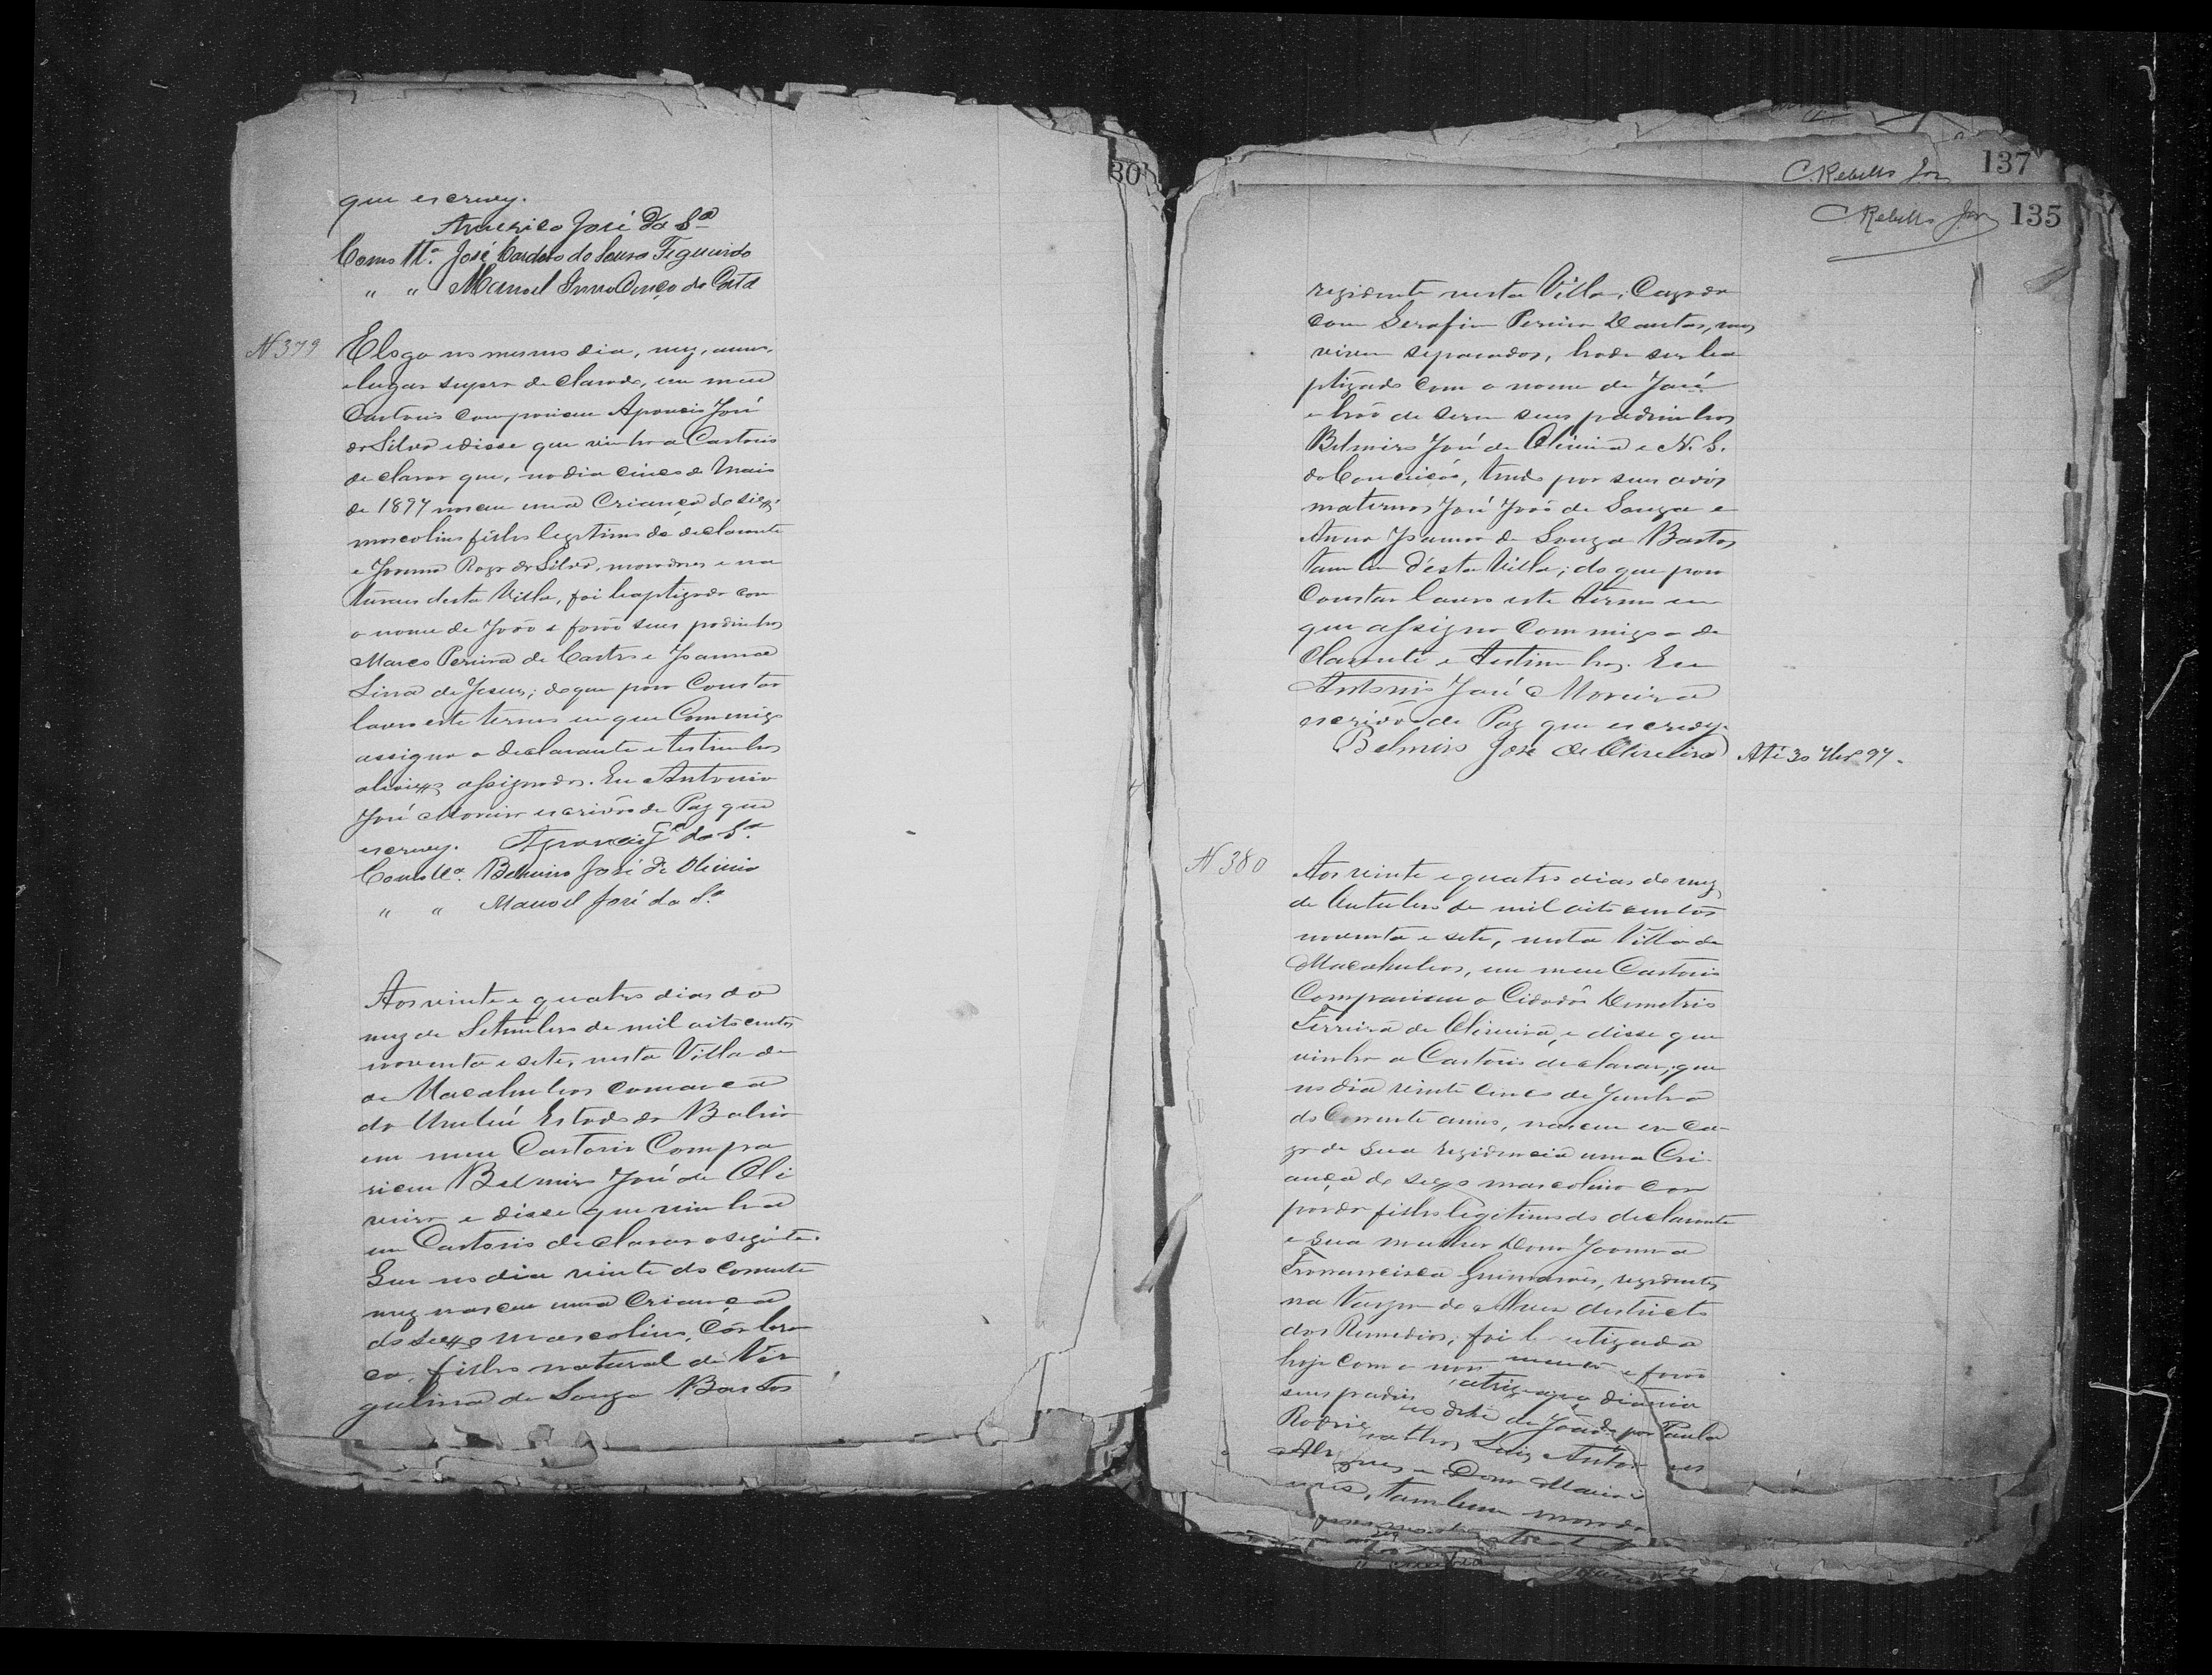 que escrevy.
Americo José da Sª
Como ttª. José Cardoso de Souza Figueiredo
" " Manoel Innocenço da Costa
N 379
E logo no mesmo dia, mez, anno,
e lugar supra declarado, em meu
Cartorio compariceu Aponcio José
da Silva e disse que vinha a Cartorio
declarar que, no dia cinco de Maio
de 1897 nasceu uma Criança do sexo
mascolino filho legitimo do declarante
e Joanna Roza da Silva, moradores e na
turaes desta Villa, foi baptizado com
o nome de João e forão seus padrinhos
Marco Pereira de Castro e Joanna
Lina de Jesus; do que para Constar
lavro este termo em que Commigo
assigna o declarante e testimunhas
abaixo assignados. Eu Antonio
José Moreira escrivão de Paz que
escrevy. Aponcio Jé da Sª
Como ttª. Belmiro José de Oliveira
" " Manoel José da Sª
Aos vinte e quatro dias do
mez de Setembro de mil oitocentos
noventa e sete, nesta Villa de
de Macahubas comarca
do Urubú Estado da Bahia
em meu Cartorio Compa
riceu Belmiro José de Oli
veira e disse que vinha
em Cartorio declarar o seguinte.
Que no dia vinte do corrente
mez nasceu uma Criança
do sexo mascolino, côr bran
ca, filho natural de Vir
gulina de Souza Bastos
30
C. Rebello Jor 137
C Rebello Jor 135
rezidente nesta Villa, Cazada
com Serafim Pereira Dantas, mas
vivem separados, hade ser ba
ptizado com o nome de José
e hão de serem seus padrinhos
Belmiro José de Oliveira e N. S.
da Conceição, tendo por seus avós
maternos José João de Souza e
Anna Joanna de Souza Bastos
tambem désta Villa; do que para
Constar lavro este termo em
que assigna Commigo o de
clarante e testimunhas. Eu
Antonio José Moreira
escrivão de Paz que escrevy.
Belmiro José de Oliveira
Até 30 7bro 97.
N 380
Aos vinte e quatro dias do mez
de Outubro de mil oitocentos
noventa e sete, nesta Villa de
Macahubas, em meu Cartorio
Compariceu o Cidadão Demetrio
Ferreira de Oliveira, e disse que
vinha a Cartorio declarar, que
no dia vinte cinco de Junho
do Corrente anno, nasceu em ca
za de sua rezidencia uma Cri
ança de sexo mascolino cor
parda filho legitimo do declarante
e sua mulher Dona Joanna
Francisca Guimarães, rezidentes
na Vargem de districto
dos Remedios; foi b utizada
hoje com o nom e forão
seus padri
Rodri de João de por Paula
Luiz Anto
e Dona Maria
tambem morado